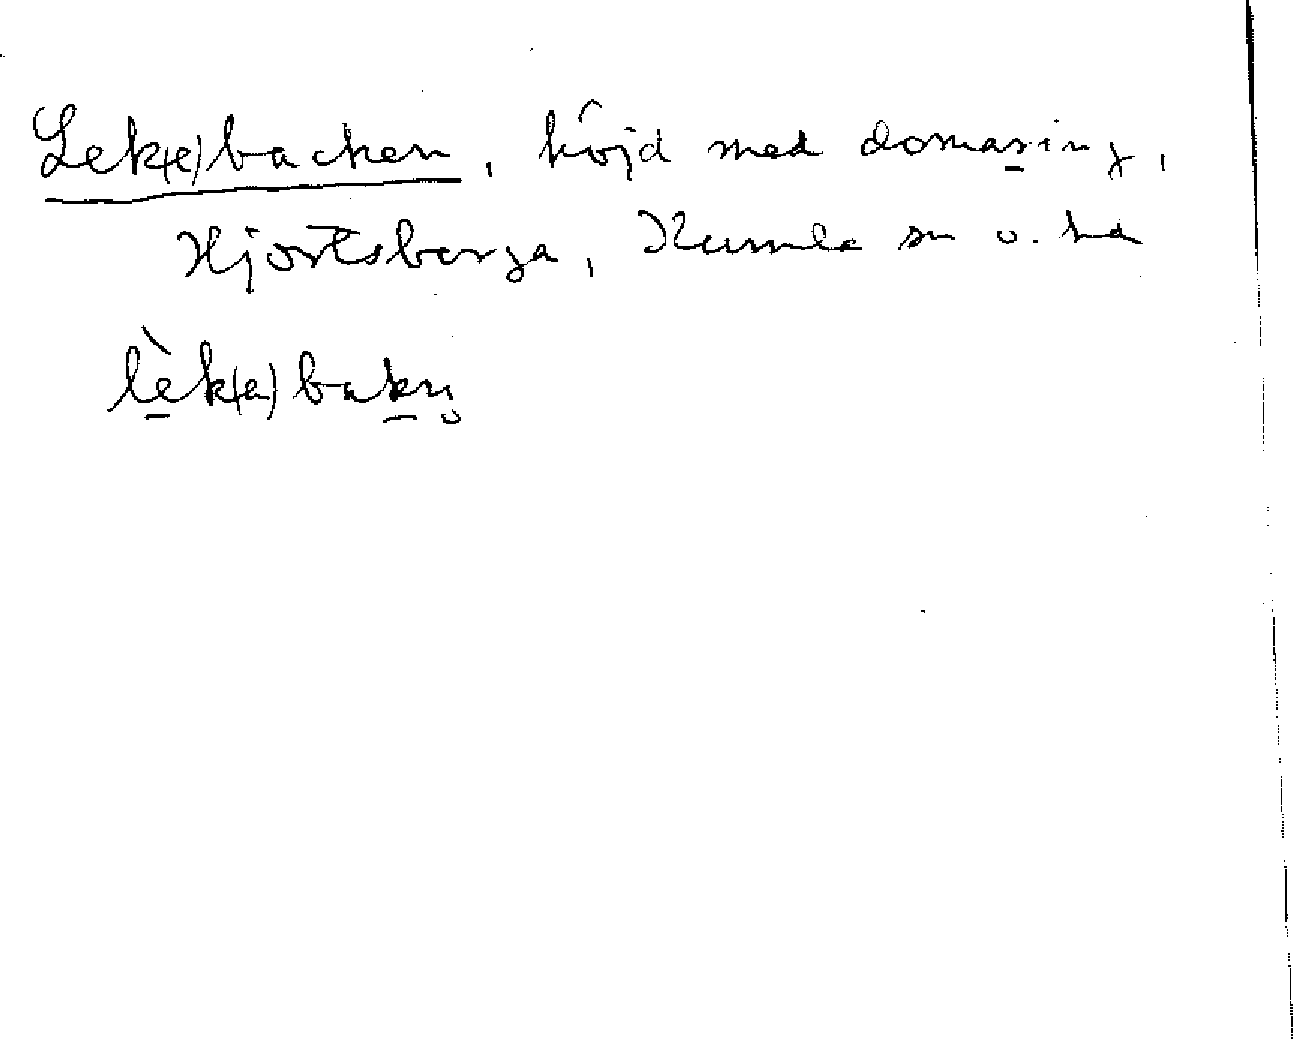 Lek(e)backen, höjd med domaring,
Hjortsberga, Kumla sn o. hd
lèk(a)bakn̥